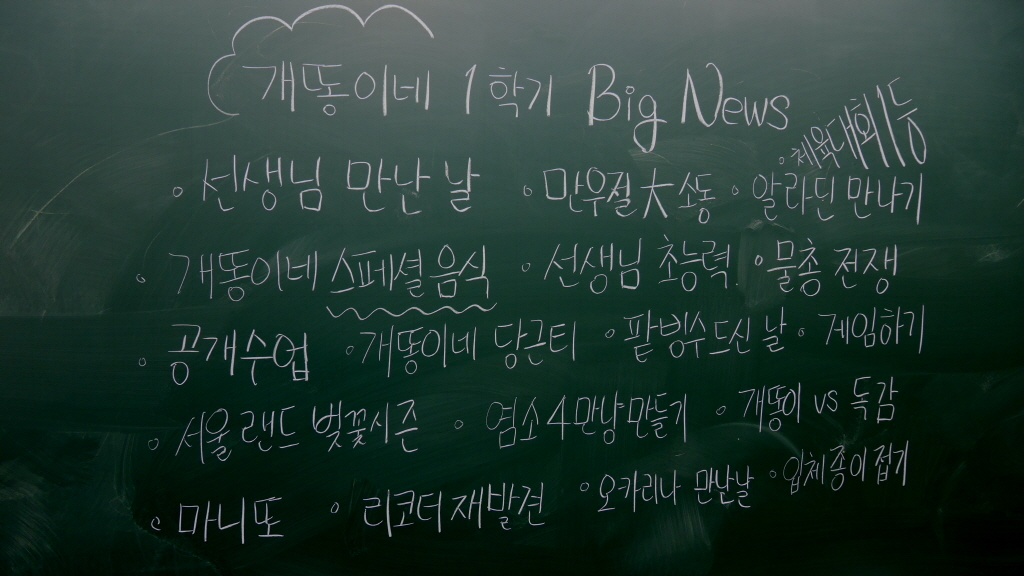 개똥이네 1학기 Big News
◦ 체육대회 1등
◦ 선생님 만난 날 ◦ 만우절 大 소동 ◦ 알라딘 만나기
◦ 개똥이네 스페셜 음식 ◦ 선생님 초능력 ◦ 물총 전쟁
◦ 공개수업 ◦ 개똥이네 당근티 ◦ 팥빙수 드신 날 ◦ 게임하기
◦ 서울랜드 벚꽃시즌 ◦ 염소 4만냥 만들기 ◦ 개똥이 vs 독감
◦ 마니또 ◦ 리코더 재발견 ◦ 오카리나 만난날 ◦ 입체종이접기